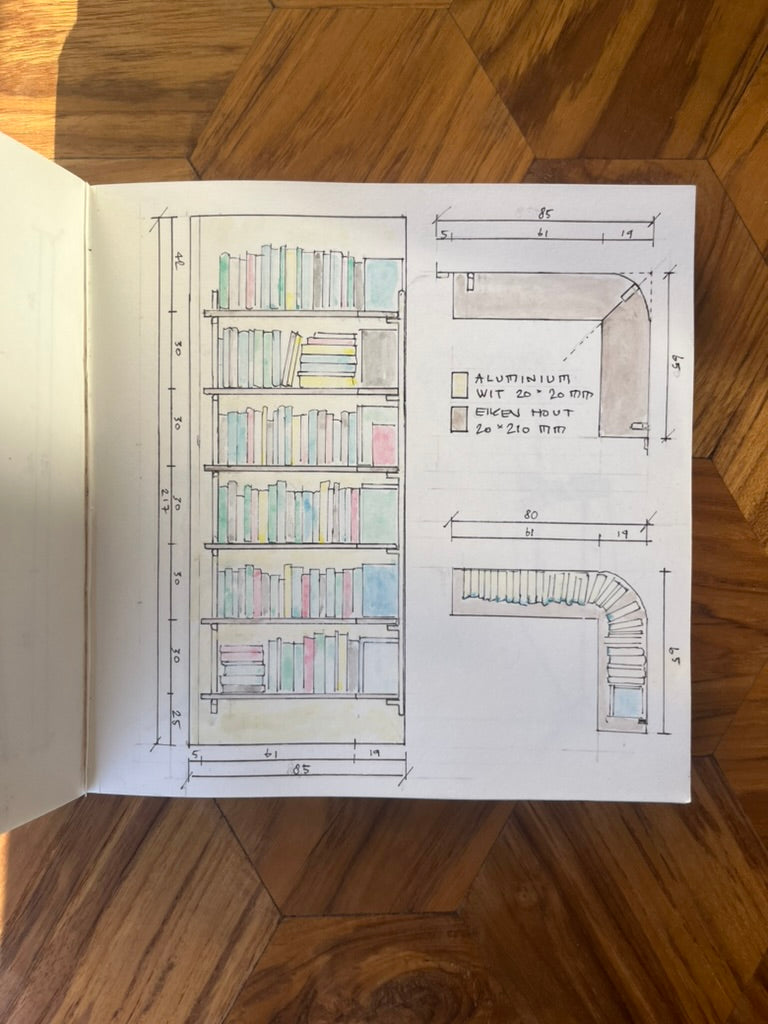 42
30
30
30
30
30
25
217
5 61 19
85
85
5 61 19
65
ALUMINIUM
WIT 20 × 20 MM
EIKEN HOUT
20 × 210 MM
80
61 19
65